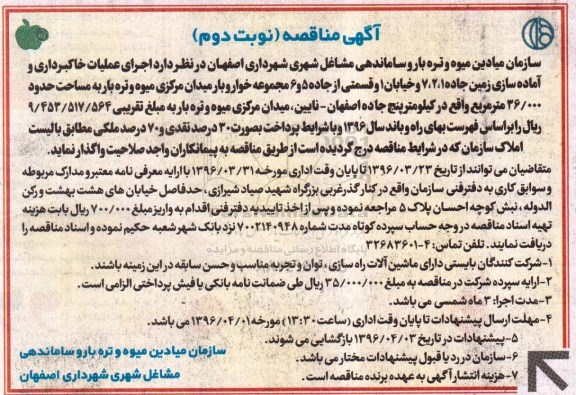 آگهی مناقصه (نوبت دوم)
سازمان میادین میوه و تره بار و ساماندهی مشاغل شهری شهرداری اصفهان در نظر دارد اجرای عملیات خاکبرداری و
آماده سازی زمین جاده ۷،۲،۱ و خیابان ۱ و قسمتی از جاده ۵ و ۶ مجموعه خواروبار میدان مرکزی میوه و تره بار به مساحت حدود
۳۶/۰۰۰ مترمربع واقع در کیلومتر پنج جاده اصفهان - نایین ، میدان مرکزی میوه و تره بار به مبلغ تقریبی ۹/۴۵۳/۵۱۷/۵۶۴
ریال را براساس فهرست بهای راه و باند سال ۱۳۹۶ و با شرایط پرداخت بصورت ۳۰ درصد نقدی و ۷۰ درصد ملکی مطابق با لیست
املاک سازمان که در شرایط مناقصه درج گردیده است از طریق مناقصه به پیمانکاران واجد صلاحیت واگذار نماید.
متقاضیان می توانند از تاریخ ۱۳۹۶/۰۳/۲۳ تا پایان وقت اداری مورخه ۱۳۹۶/۰۳/۳۱ با ارایه معرفی نامه معتبر و مدارک مربوطه
و سوابق کاری به دفتر فنی سازمان واقع در کنار گذر غربی بزرگراه شهید صیاد شیرازی ، حدفاصل خیابان های هشت بهشت و رکن
الدوله ، نبش کوچه احسان پلاک ۵ مراجعه نموده و پس از اخذ تاییدیه دفتر فنی اقدام به واریز مبلغ ۷۰۰/۰۰۰ ریال بابت هزینه
تهیه اسناد مناقصه در وجه حساب سپرده کوتاه مدت شماره ۷۰۰۲۱۴۰۹۴۸ نزد بانک شهر شعبه حکیم نموده و اسناد مناقصه را
دریافت نمایند. تلفن تماس: ۴-۳۲۶۸۳۶۰۱
۱-شرکت کنندگان بایستی دارای ماشین آلات راه سازی ، توان و تجربه مناسب و حسن سابقه در این زمینه باشند.
۲-ارایه سپرده شرکت در مناقصه به مبلغ ۳۵/۰۰۰/۰۰۰ ریال طی ضمانت نامه بانکی یا فیش پرداختی الزامی است.
۳-مدت اجرا: ۳ ماه شمسی می باشد.
۴-مهلت ارسال پیشنهادات تا پایان وقت اداری (ساعت ۱۳:۳۰) مورخه ۱۳۹۶/۰۴/۰۱ می باشد.
۵-پیشنهادات در تاریخ ۱۳۹۶/۰۴/۰۳ بازگشایی می شوند.
۶-سازمان در رد یا قبول پیشنهادات مختار می باشد.
۷-هزینه انتشار آگهی به عهده برنده مناقصه است.
سازمان میادین میوه و تره بار و ساماندهی
مشاغل شهری شهرداری اصفهان